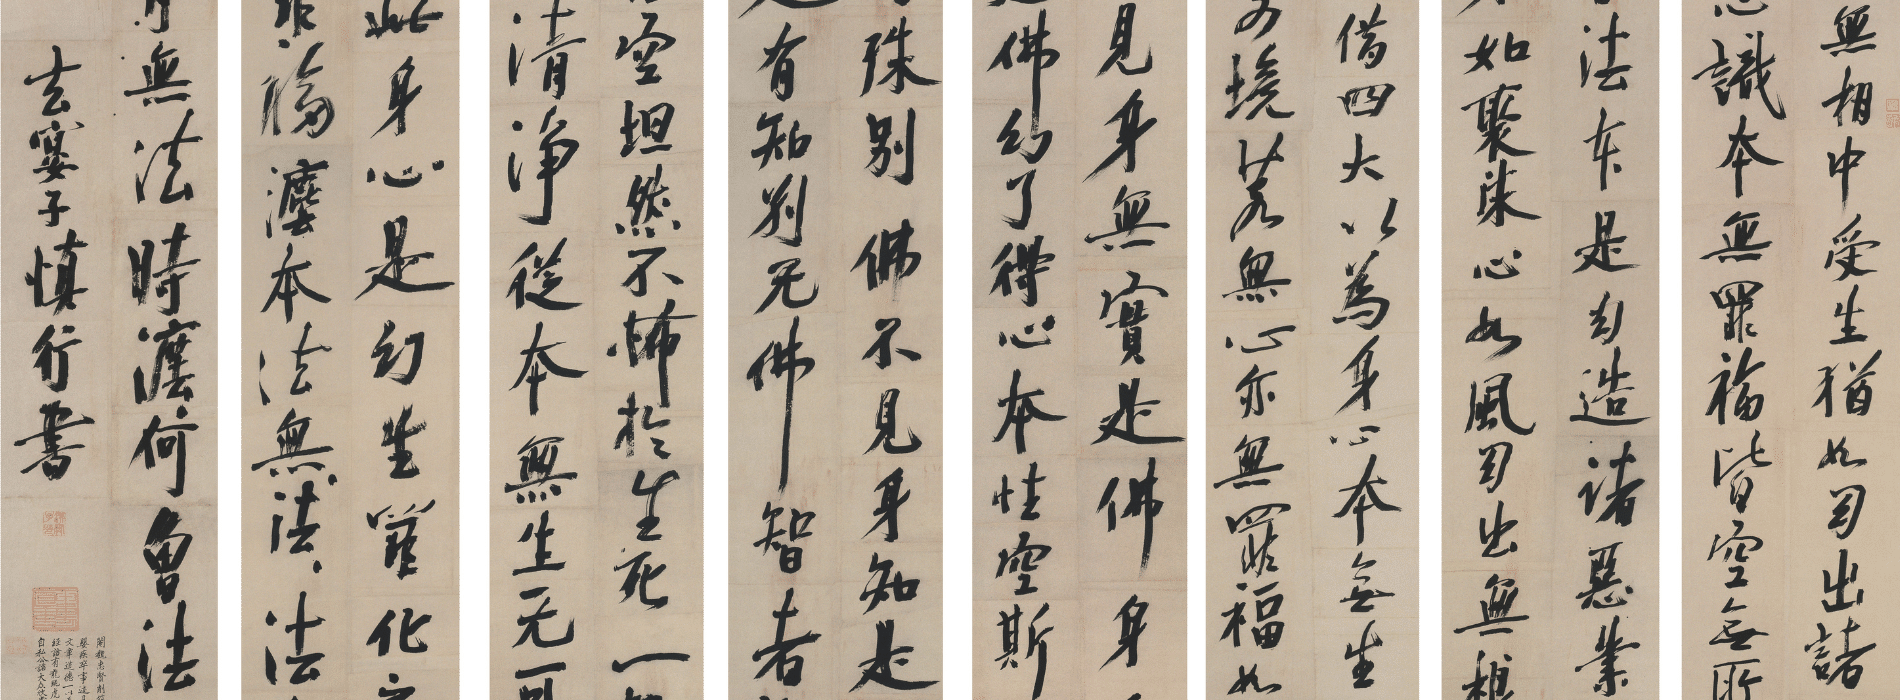 無相中受生猶如幻出諸
心識本無罪福皆空無所
法本是幻造諸惡業
如聚沫心如風幻出無根
借四大以為身心本無生
境若無心亦無罪福如
見身無實是佛身
佛幻了得心本性空斯
殊別佛不見身知是
有知別无佛智者
空坦然不怖於生死一
清淨從本無生无可
此身心是幻生化
福灋本法無法法
無法時灋何曾法
子慎行書